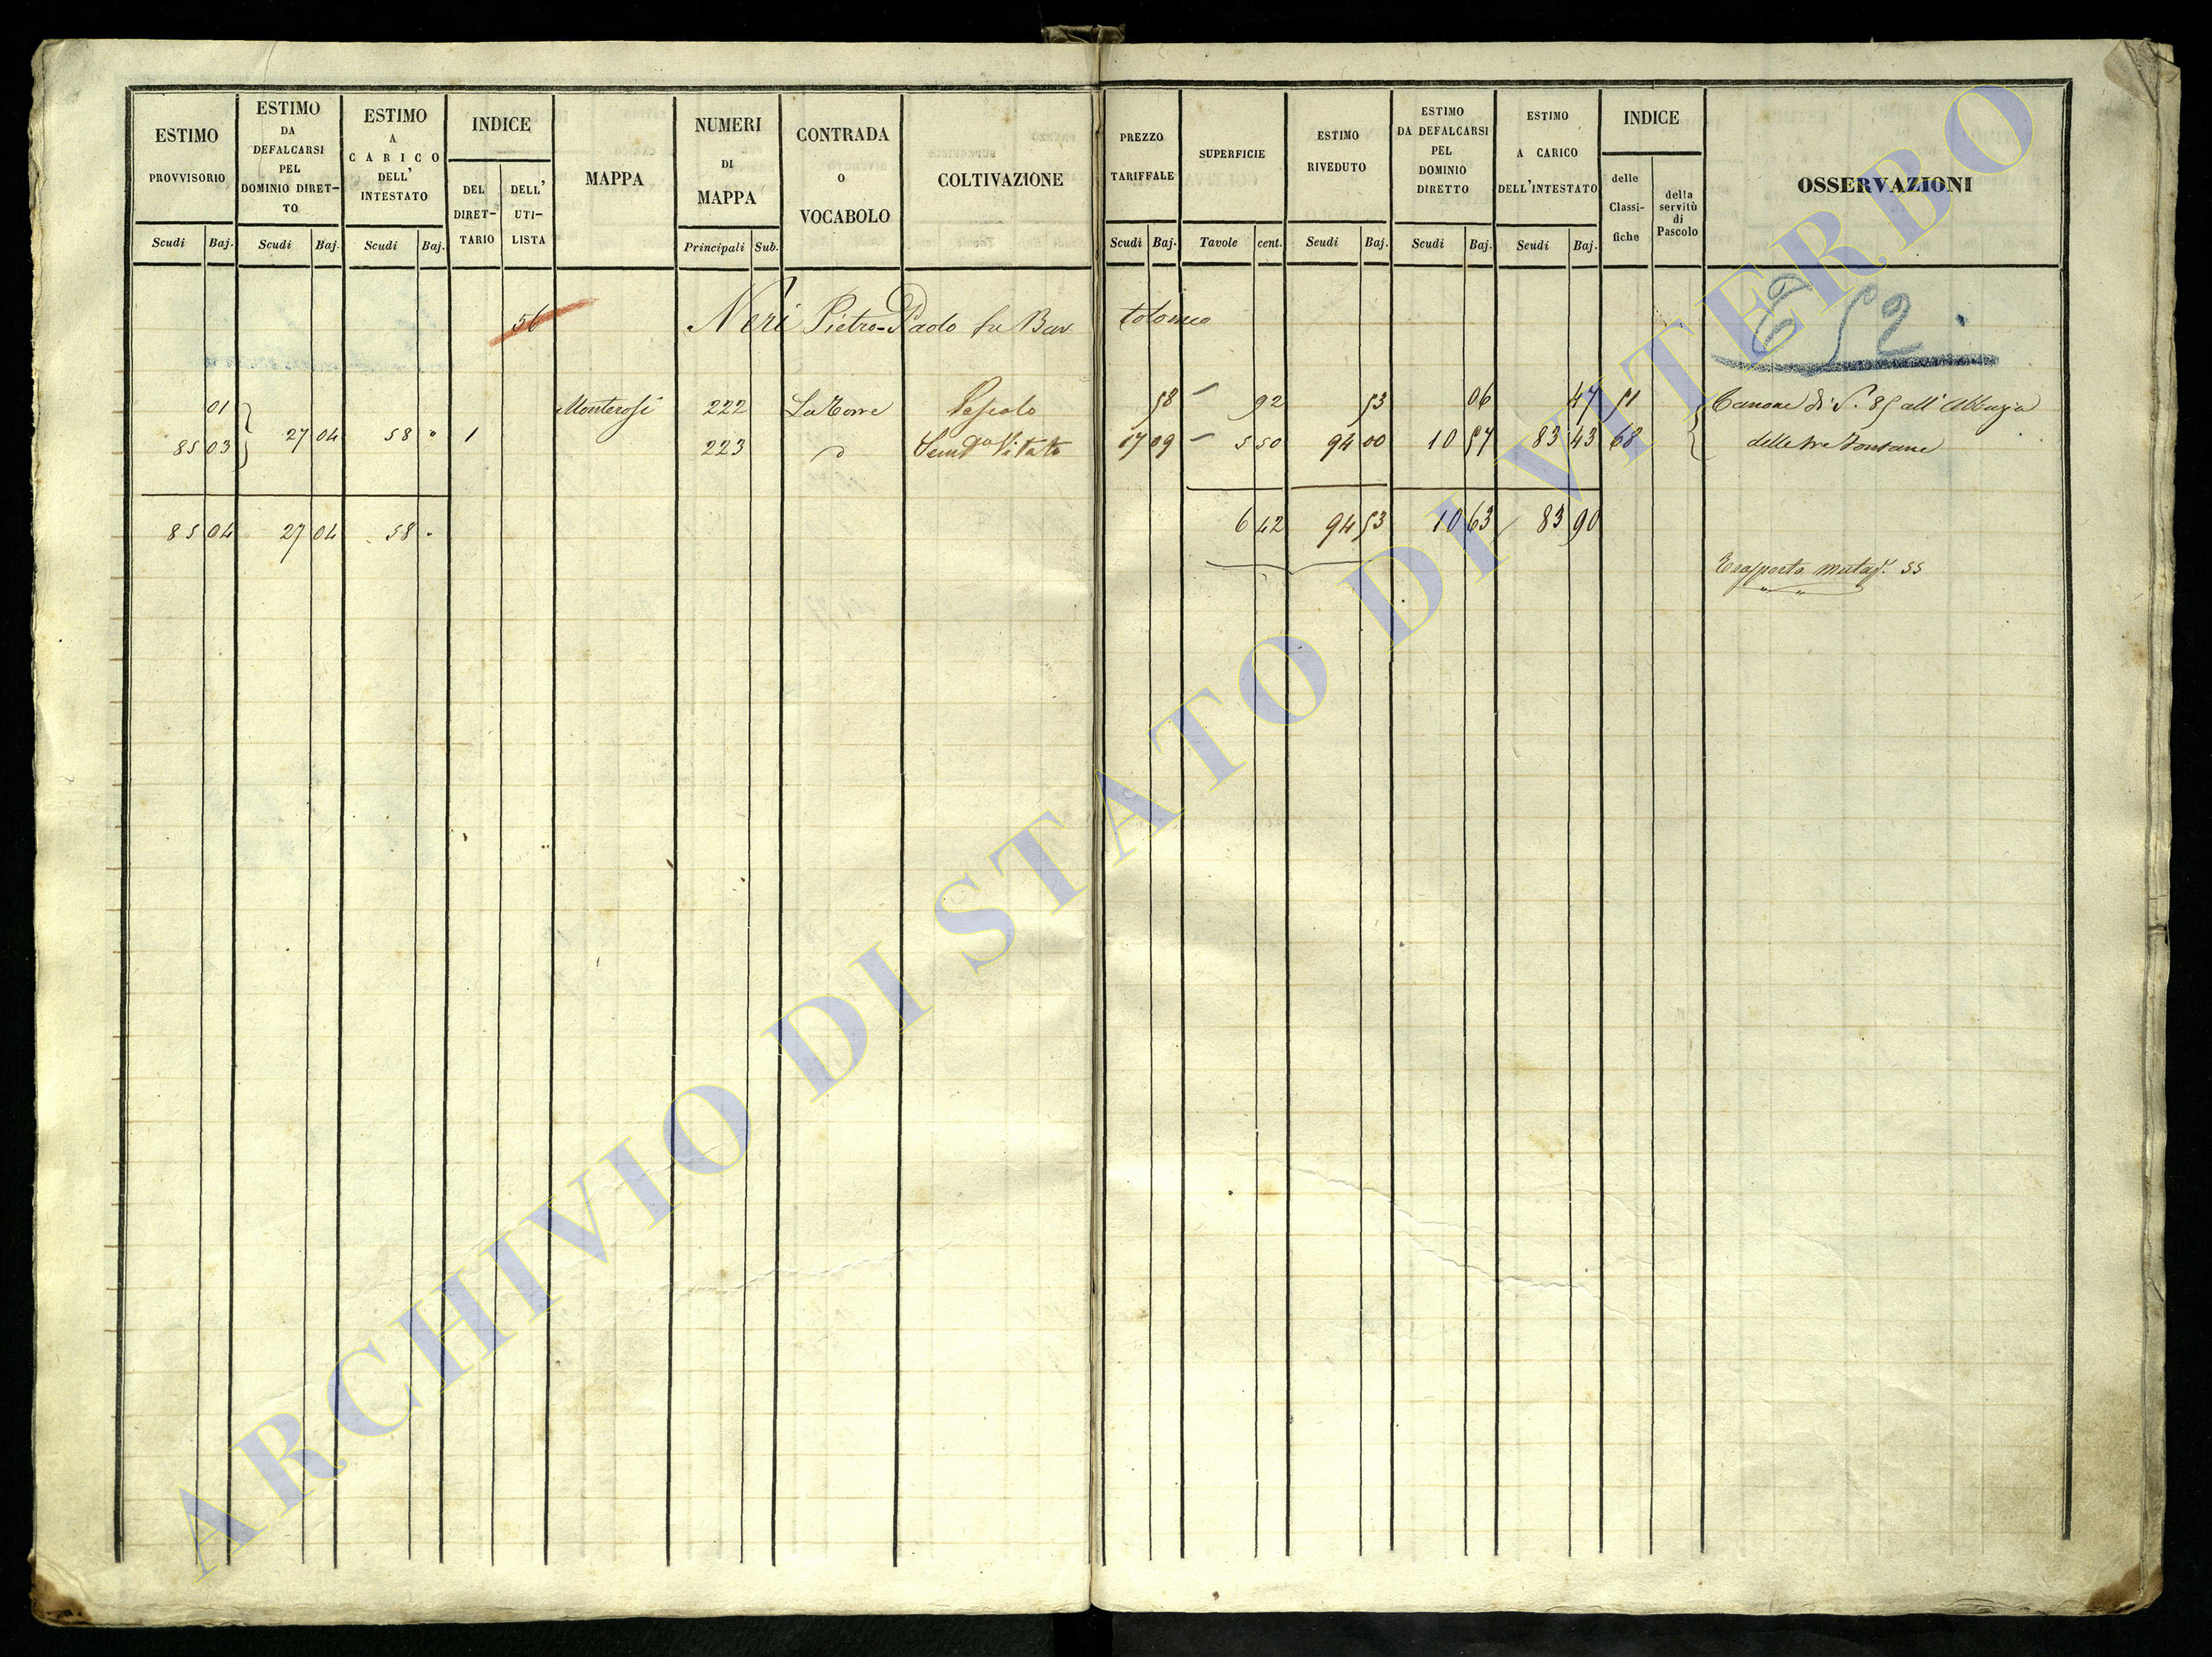 ESTIMO PROVVISORIO
Scudi Baj.
ESTIMO DA DEFALCARSI PEL DOMINIO DIRET- TO
Scudi Baj.
ESTIMO A CARICO DELL' INTESTATO
Scudi Baj.
INDICE
DEL DIRET- TARIO
DELL' UTI- LISTA
MAPPA
NUMERI DI MAPPA
Principali Sub.
CONTRADA O VOCABOLO
COLTIVAZIONE
PREZZO TARIFFALE
Scudi Baj.
SUPERFICIE
Tavole cent.
ESTIMO RIVEDUTO
Scudi Baj.
ESTIMO DA DEFALCARSI PEL DOMINIO DIRETTO
Scudi Baj.
ESTIMO A CARICO DELL'INTESTATO
Scudi Baj.
INDICE
delle Classi- fiche
della servitù di Pascolo
OSSERVAZIONI
56 Neri Pietro-Paolo fu Bar tolomeo
52
01 Monterosi 222 La Torre Pascolo 58 92 53 06 47 51 Canone di S. 85 all' Abbazia
85 03 27 04 58 " 1 223 D Sem.vo Vitato 17 09 5 50 94 00 10 57 83 43 68 delle tre Fontane
85 04 27 04 58 " 6 42 94 53 10 63 83 90
Trasporto 55
ARCHIVIO DI STATO DI VITERBO